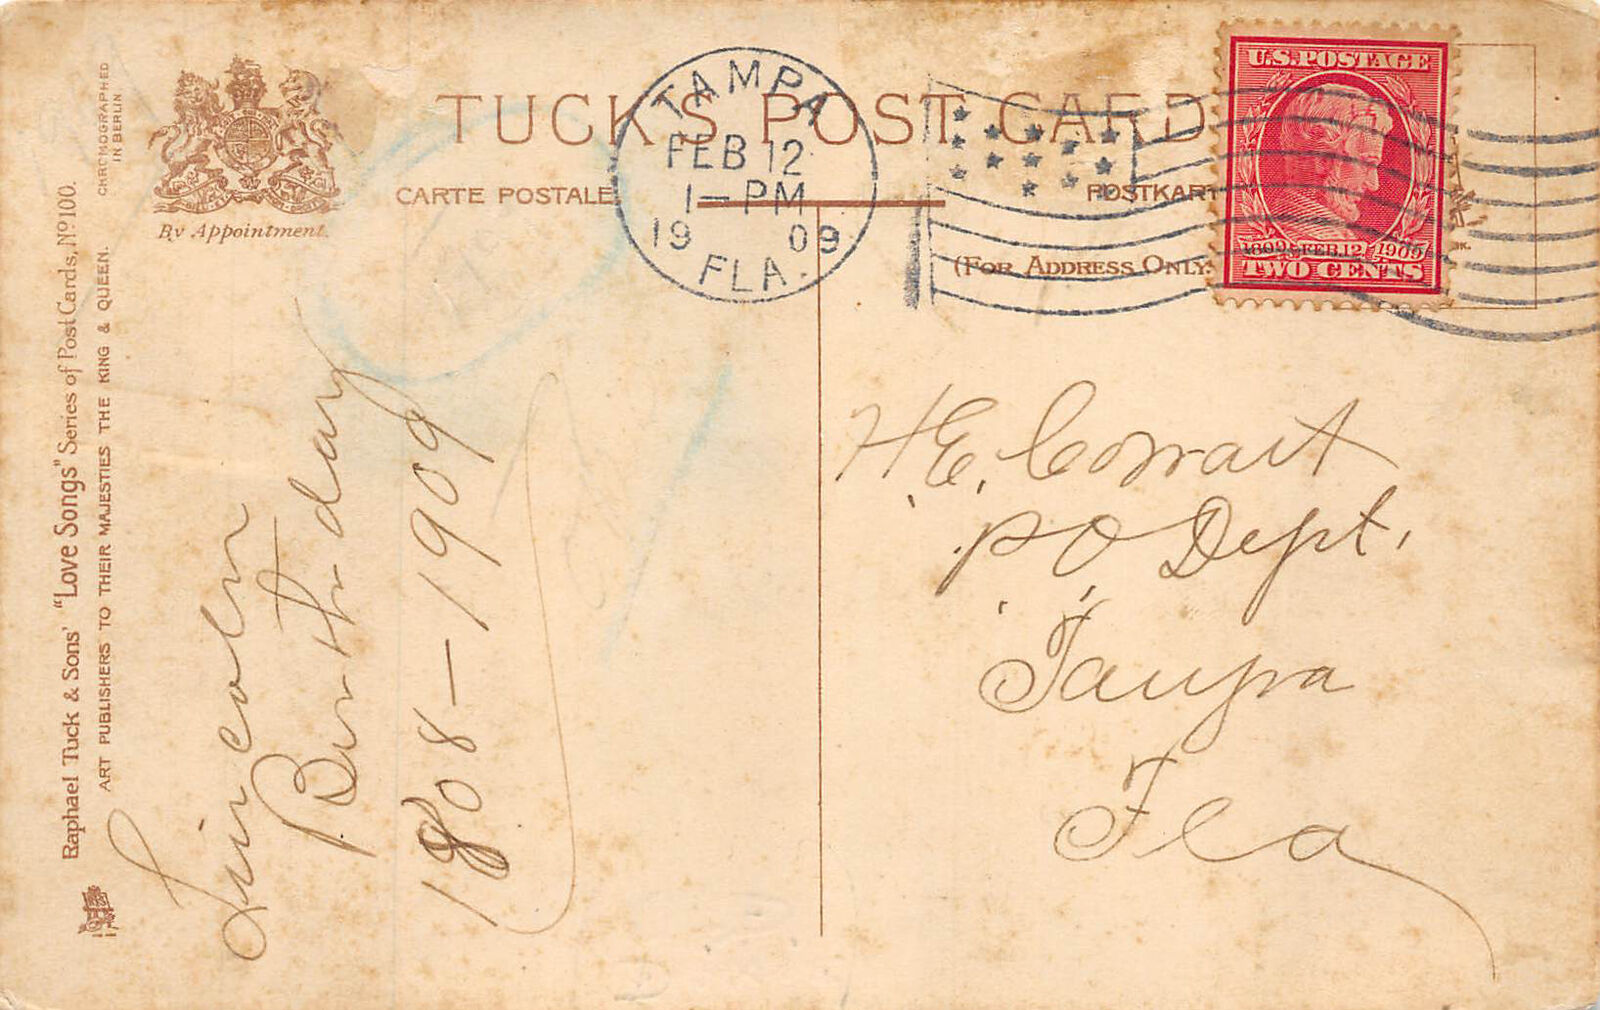 TUCK'S POST CARD
CARTE POSTALE
POSTKART
(FOR ADDRESS ONLY.
By Appointment.
CHROMOGRAPHED
IN BERLIN
Raphael Tuck & Sons' "Love Songs" Series of Post Cards, Nº 100.
ART PUBLISHERS TO THEIR MAJESTIES THE KING & QUEEN.
TAMPA
FEB 12
1-PM
19 09
FLA.
U.S. POSTAGE
1809 FEB. 12. 1909
TWO CENTS
Lincoln
Birthday
1808-1909
H.E.
P O Dept.
Tampa
Fla